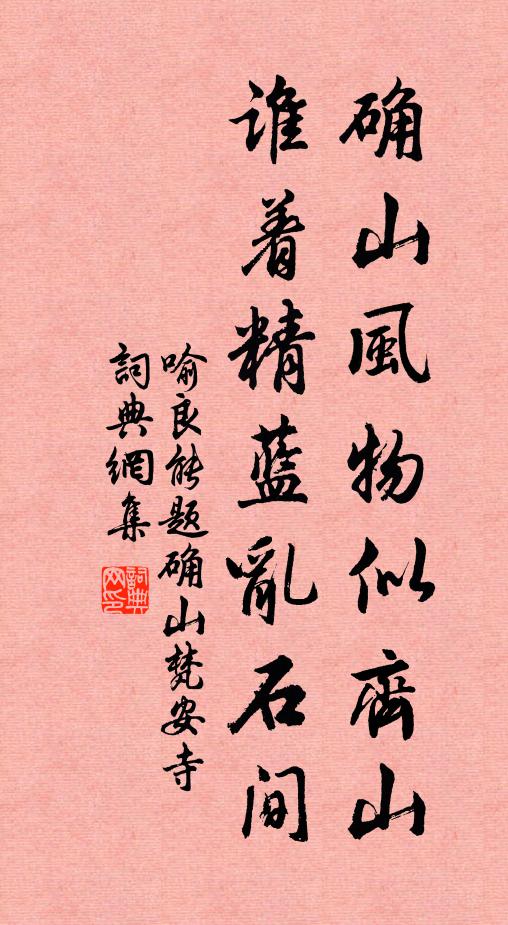 确山風物似齊山
誰着精藍亂石间
喻良能题确山梵安寺
詞典網集
詞典网印